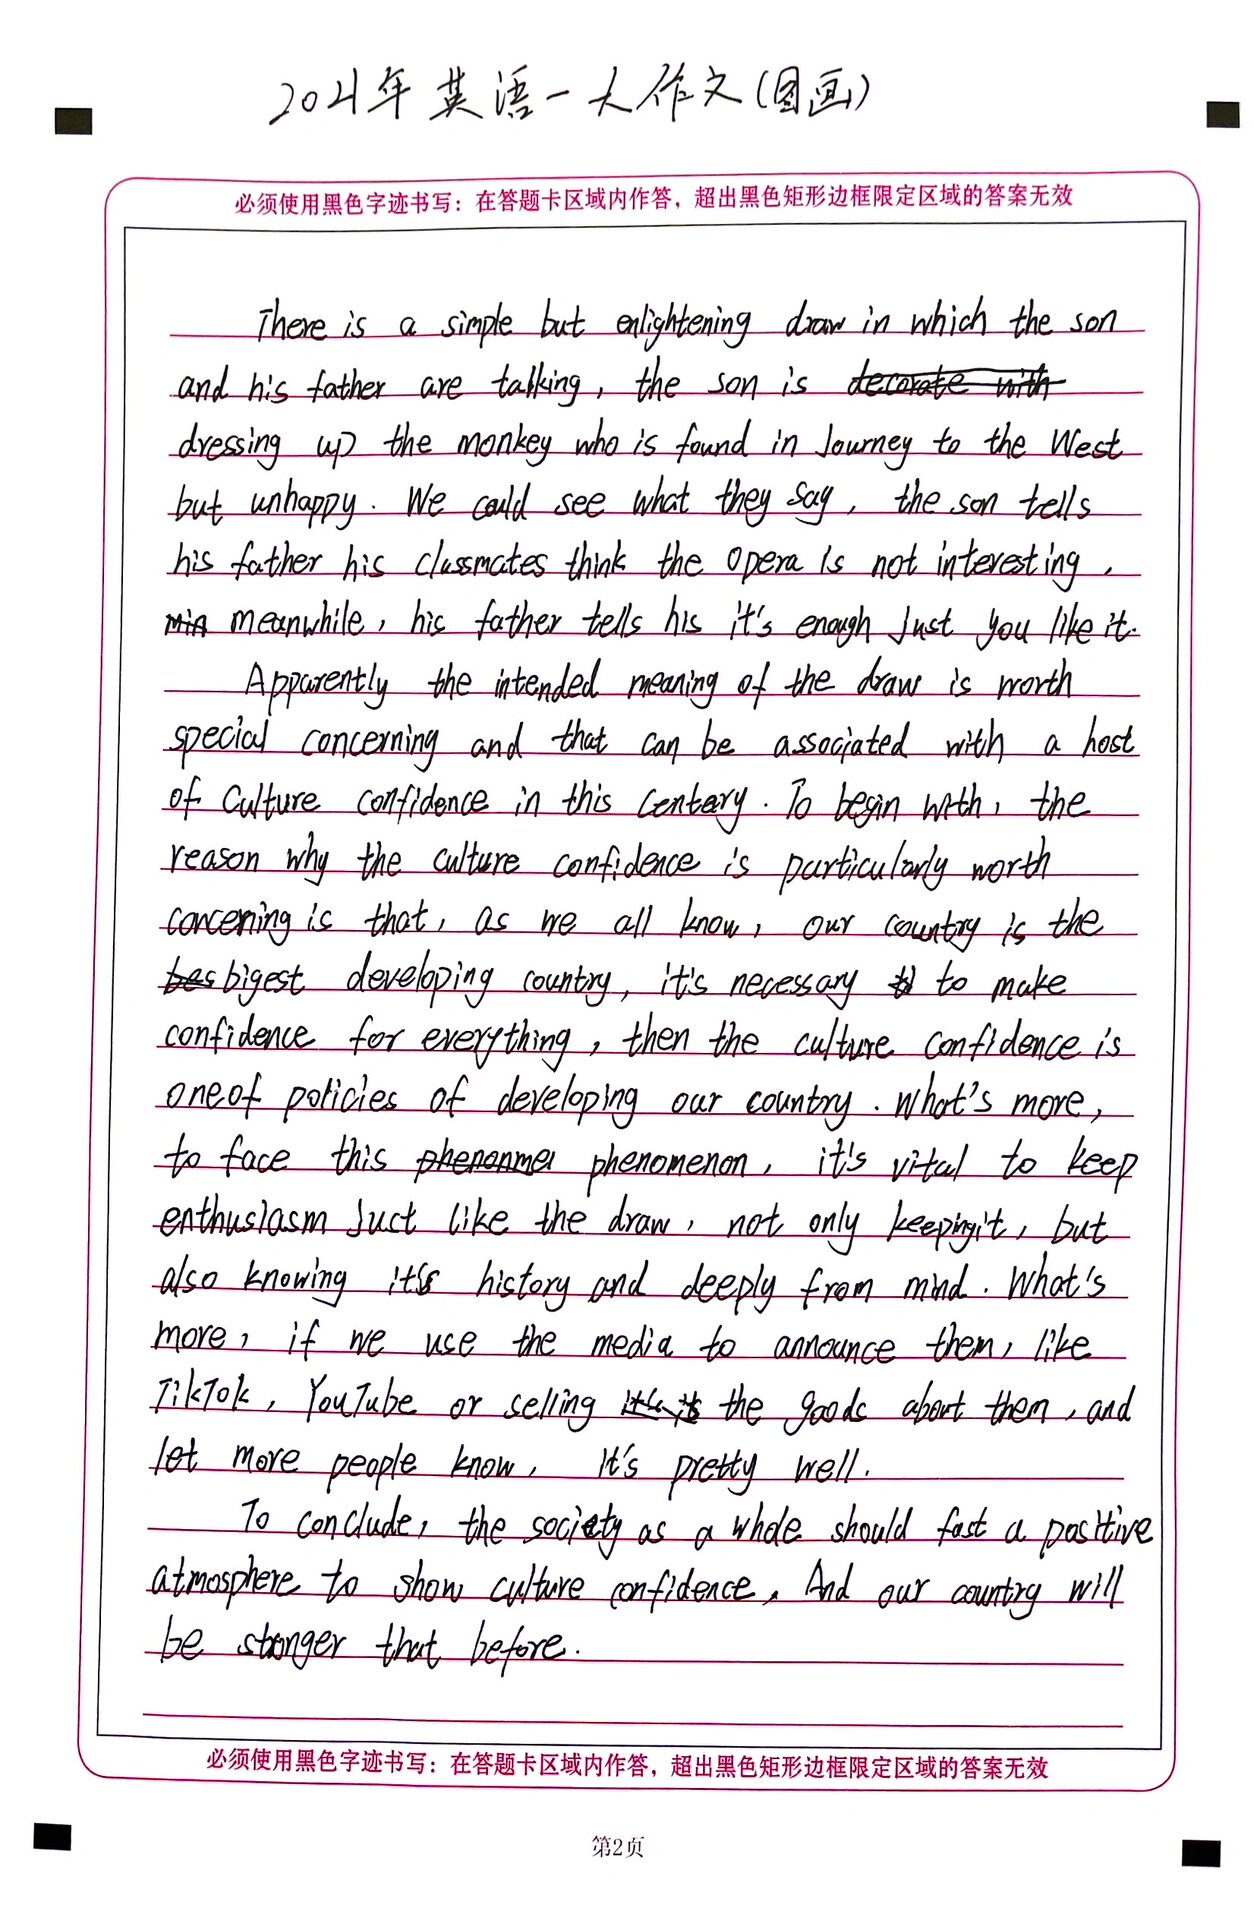 2021年英语一大作文(图画)
必须使用黑色字迹书写：在答题卡区域内作答，超出黑色矩形边框限定区域的答案无效
There is a simple but enlightening draw in which the son
and his father are talking, the son is decorate with
dressing up the monkey who is found in Journey to the West
but unhappy. We could see what they say, the son tells
his father his classmates think the opera is not interesting,
min meanwhile, his father tells his it's enough just you like it.
Apparently the intended meaning of the draw is worth
special concerning and that can be associated with a host
of culture confidence in this centary. To begin with, the
reason why the culture confidence is particularly worth
concerning is that, as we all know, our country is the
bes bigest developing country, it's necessary to to make
confidence for everything, then the culture confidence is
one of policies of developing our country. What's more,
to face this phenonmei phenomenon, it's vital to keep
enthusiasm just like the draw, not only keeping it, but
also knowing it's history and deeply from mind. What's
more, if we use the media to announce them, like
TikTok, YouTube or selling the goods about them, and
let more people know, it's pretty well.
To conclude, the society as a whole should fast a positive
atmosphere to show culture confidence, And our country will
be stronger that before.
必须使用黑色字迹书写：在答题卡区域内作答，超出黑色矩形边框限定区域的答案无效
第2页